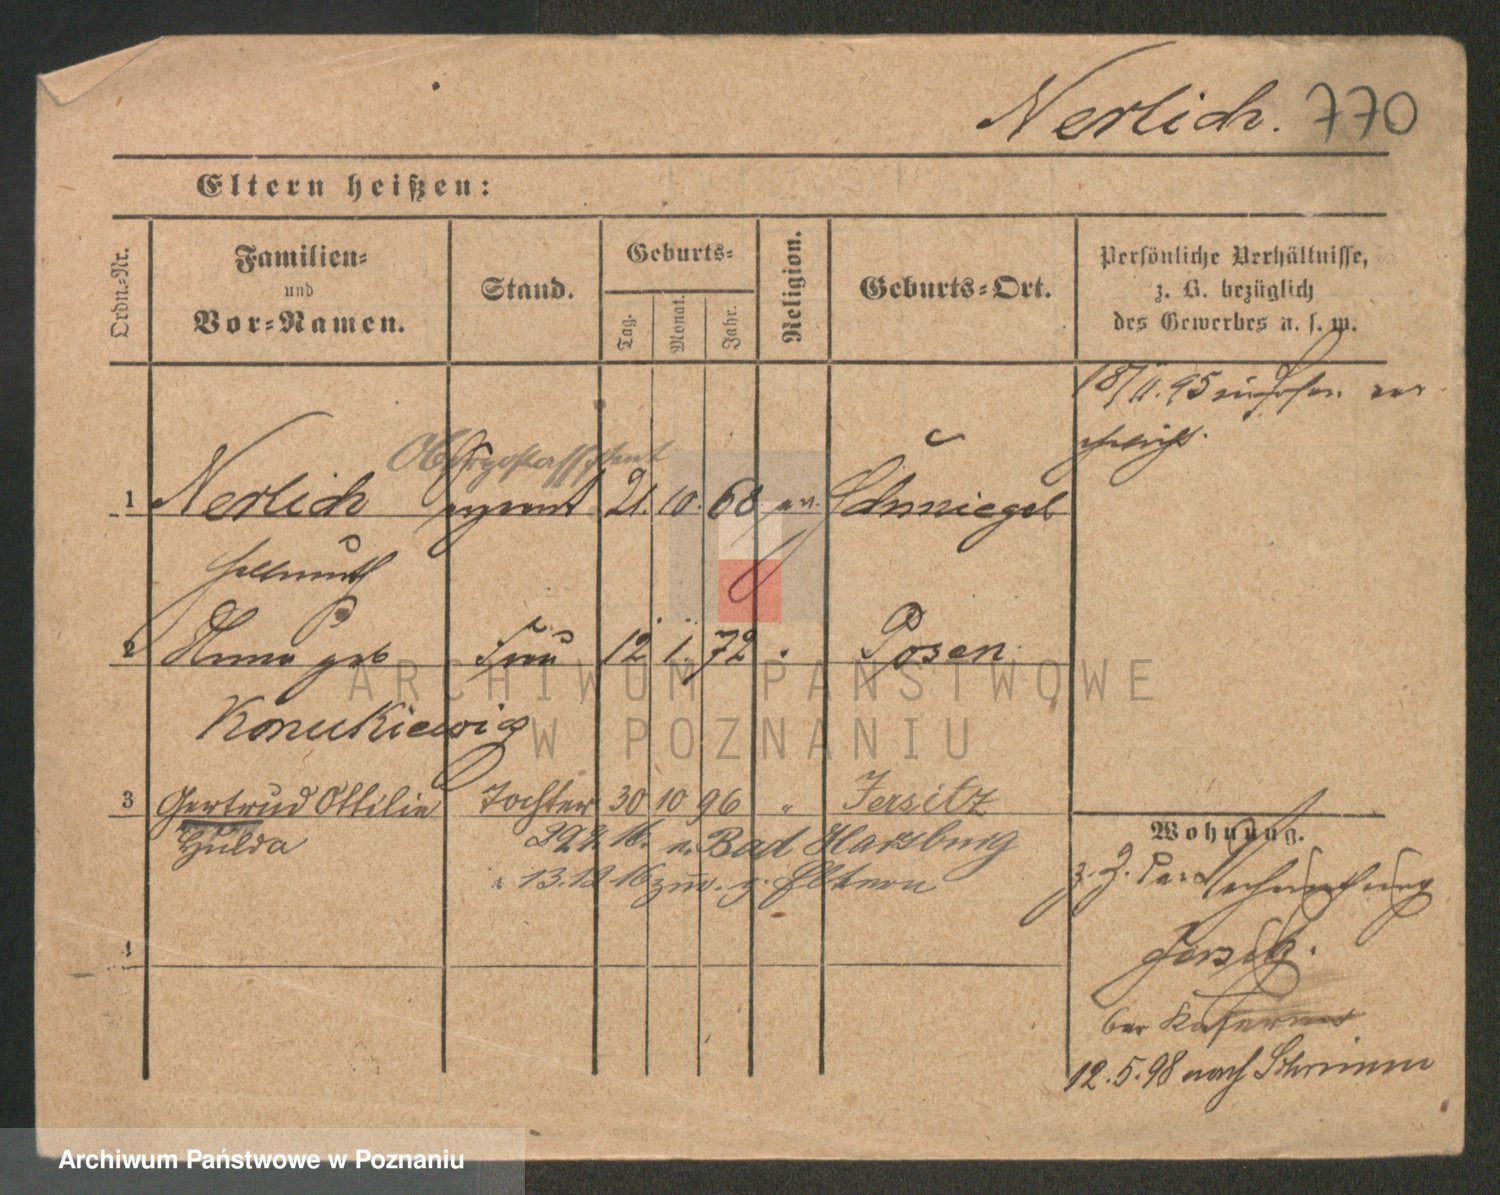 Nerlich. 770
Eltern heißen:
Ordn.-Nr.
Familien-
und
Vor-Namen.
Stand.
Geburts-
Tag.
Monat.
Jahr.
Religion.
Geburts-Ort.
Persönliche Verhältnisse,
z. B. bezüglich
des Gewerbes u. s. w.
18/11.95 in Posen ver
1 Nerlich 21. 10. 68 ev. Schmiegel
Hellmuth
2 Anna geb Frau 12 1. 72 " Posen
3 Gertrud Ottilie Tochter 30 10 96 " Jersitz
Hulda
n. Bad Harzburg
13.12.16 zur. z. Eltern
4
Wohnung.
z. Z.
Jersitz.
12.5.98 nach Schrimm
ARCHIWUM PAŃSTWOWE
W POZNANIU
Archiwum Państwowe w Poznaniu